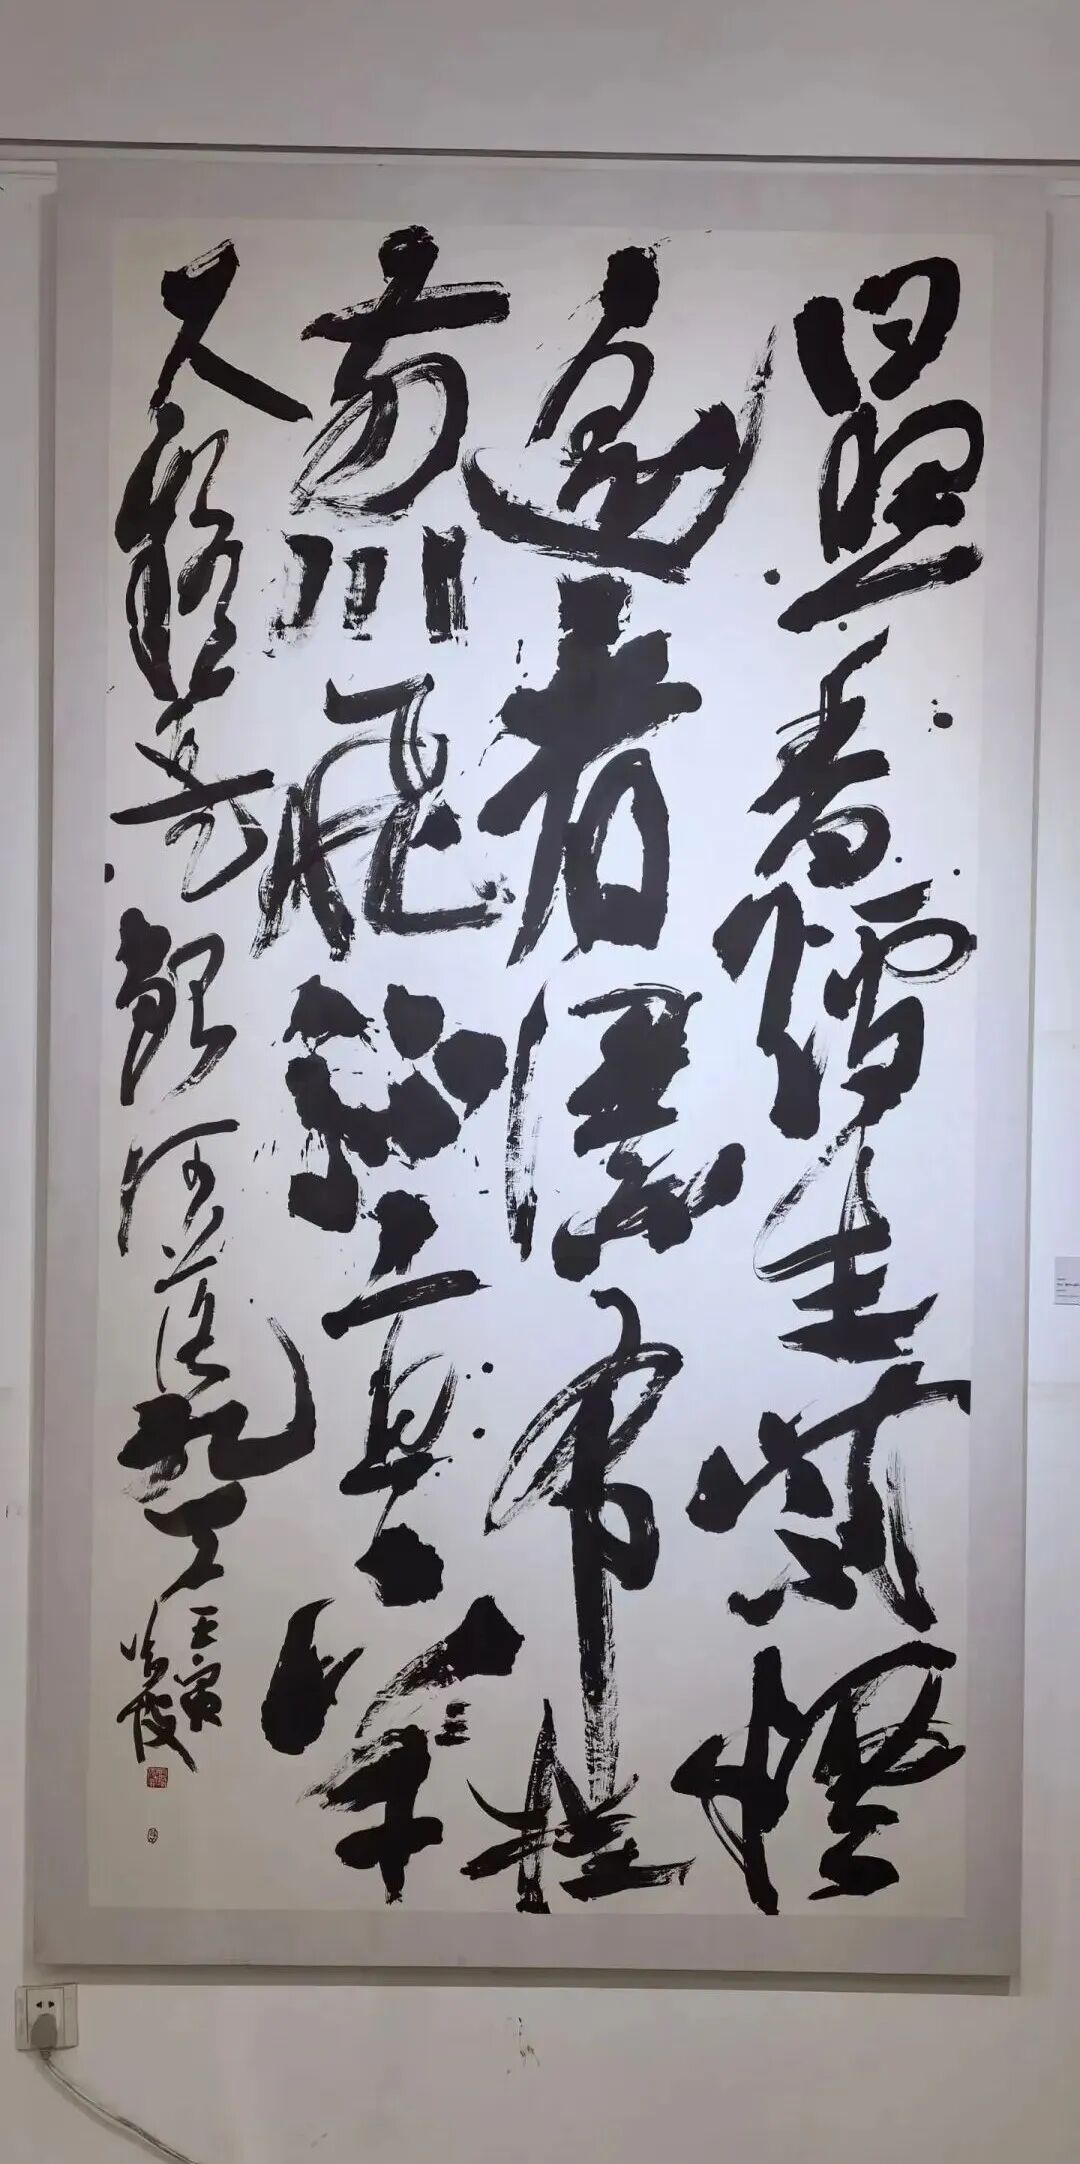 日照香爐生紫煙
遙看瀑布挂
前川飛流直下三千
尺疑是銀河落九天
壬寅